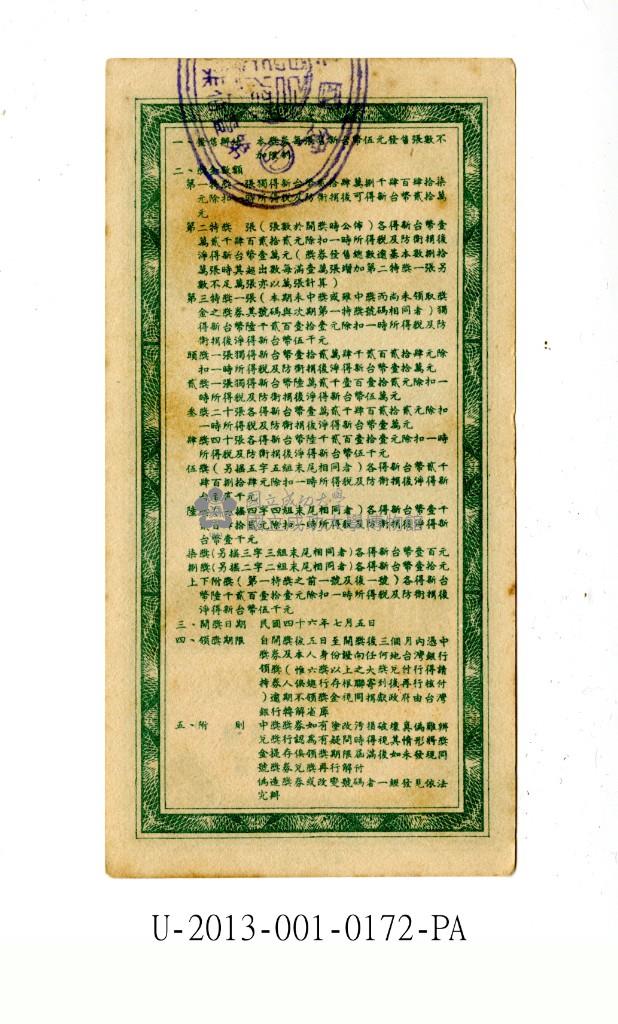 一、發售辦法　本獎券每張售新台幣伍元發售張數不
加限制
二、獎金數額
第一特獎一張獨得新台幣貳拾肆萬捌千肆百肆拾柒
元除扣一時所得稅及防衛捐後可得新台幣貳拾萬
元
第二特獎　張（張數於開獎時公佈）各得新台幣壹
萬貳千肆百貳拾貳元除扣一時所得稅及防衛捐後
淨得新台幣壹萬元（獎券發售總數達基本數捌拾
萬張時其超出數每滿壹萬張增加第二特獎一張另
數不足萬張亦以萬張計算）
第三特獎一張（本期未中獎或雖中獎而尚未領取獎
金之獎券其號碼與次期第一特獎號碼相同者）獨
得新台幣陸千貳百壹拾壹元除扣一時所得稅及防
衛捐後淨得新台幣伍千元
頭獎一張獨得新台幣壹拾貳萬肆千貳百貳拾肆元除
扣一時所得稅及防衛捐後淨得新台幣壹拾萬元
貳獎一張獨得新台幣陸萬貳千壹百壹拾貳元除扣一
時所得稅及防衛捐後淨得新台幣伍萬元
叁獎二十張各得新台幣壹萬貳千肆百貳拾貳元除扣
一時所得稅及防衛捐後淨得新台幣壹萬元
肆獎四十張各得新台幣陸千貳百壹拾壹元除扣一時
所得稅及防衛捐後淨得新台幣伍千元
伍獎（另搖五字五組末尾相同者）各得新台幣貳千
肆百捌拾肆元除扣一時所得稅及防衛捐後淨得新
台幣貳千元
陸獎（另搖四字四組末尾相同者）各得新台幣壹千
貳百肆拾貳元除扣一時所得稅及防衛捐後淨得新
台幣壹千元
柒獎（另搖三字三組末尾相同者）各得新台幣壹百元
捌獎（另搖二字二組末尾相同者）各得新台幣壹拾元
上下附獎（第一特獎之前一號及後一號）各得新台
幣陸千貳百壹拾壹元除扣一時所得稅及防衛捐後
淨得新台幣伍千元
三、開獎日期　民國四十六年七月五日
四、領獎期限　自開獎後五日至開獎後三個月內憑中
獎券及本人身份證向任何地台灣銀行
領獎（惟六獎以上之大獎兌付行得請
持券人俟總行存根聯寄到後再行核付
）逾期不領獎金視同捐獻政府由台灣
銀行轉解省庫
五、附　則　中獎獎券如有塗改污損破壞真偽難辨
兌獎行認為有疑問時得視其情形將獎
金提存俟領獎期限屆滿後如未發現同
號獎券兌獎再行解付
偽造獎券或改變號碼者一經發見依法
究辦
國立成功大學
國立成功大學博物館
U-2013-001-0172-PA